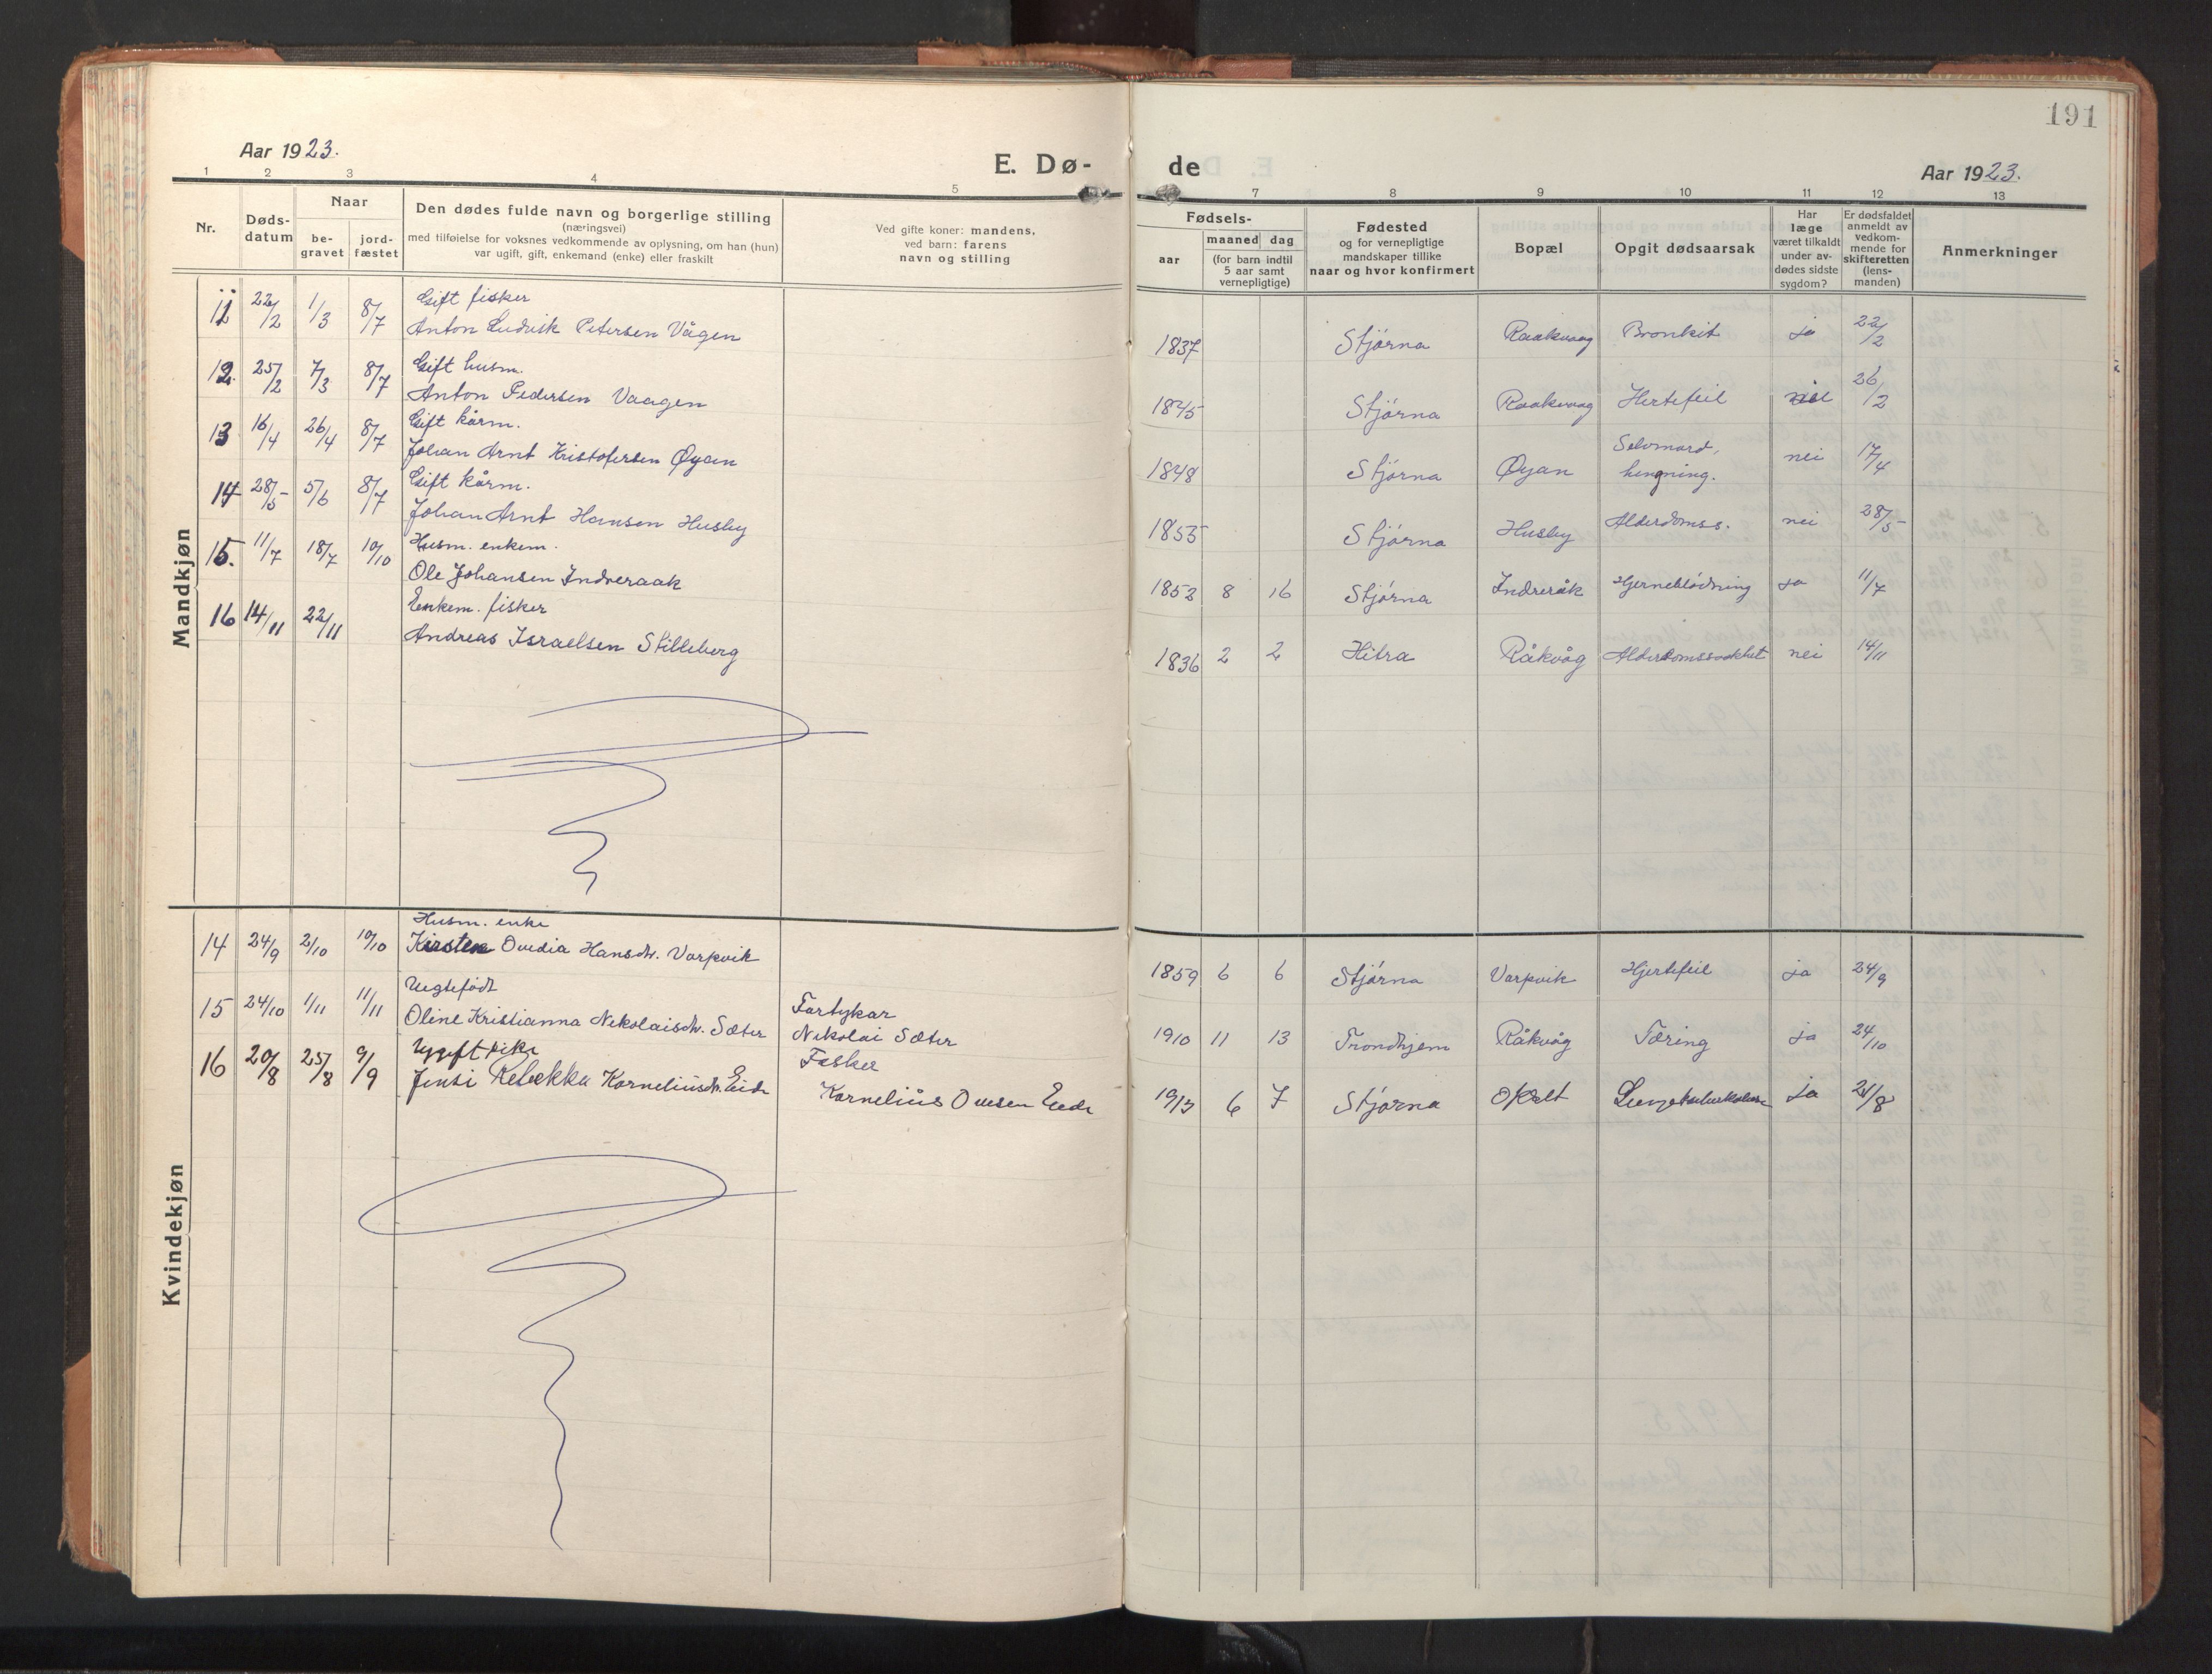 191
Aar 1923.
E. Dø-
de
Aar 1923.
1 2 3 4 5
7 8 9 10 11 12 13
Nr.
Døds-
datum
Naar
be-
gravet
jord-
fæstet
Den dødes fulde navn og borgerlige stilling
(næringsvei)
med tilføielse for voksnes vedkommende av oplysning, om han (hun)
var ugift, gift, enkemand (enke) eller fraskilt
Ved gifte koner: mandens,
ved barn: farens
navn og stilling
Fødsels-
aar
maaned dag
(for barn indtil
5 aar samt
vernepligtige)
Fødested
og for vernepligtige
mandskaper tillike
naar og hvor konfirmert
Bopæl
Opgit dødsaarsak
Har
læge
været tilkaldt
under av-
dødes sidste
sygdom?
Er dødsfaldet
anmeldt av
vedkom-
mende for
skifteretten
(lens-
manden)
Anmerkninger
Mandkjøn
11 22/2 1/3 8/7 Gift fisker
Anton Ludvik Petersen Vågen 1837 Stjørna Raakvaag Bronkit ja 22/2
12. 25/2 7/3 8/7 Gift husm.
Anton Pedersen Vaagen 1845 Stjørna Raakvaag Hertefeil 26/2
13 16/4 26/4 8/7 Gift kårm.
Johan Arnt Kristofersen Øyan 1848 Stjørna Øyan Selvmord, hengning. nei 17/4
14 28/5 5/6 8/7 Gift kårm.
Johan Arnt Hansen Husby 1853 Stjørna Husby Alderdomss. nei 28/5
15. 11/7 18/7 10/10 Husm. enkem.
Ole Johansen Indreraak 1852 8 16 Stjørna Indreråk Hjerneblödning ja 11/7
16 14/11 22/11 Enkem. fisker
Andreas Israelsen Stilleberg 1836 2 2 Hitra Råkvåg Alderdomssvakhet nei 14/11
Kvindekjøn
Husm. enke
14 24/9 2/10 10/10 Kirsten Ovedia Hansdtr. Varpvik 1859 6 6 Stjørna Varpvik Hjertefeil ja 24/9
Uegtefödt Fartykar
15 24/10 1/11 11/11 Oline Kristianna Nikolaisdtr. Sæter Nikolai Sæter 1910 11 13 Trondhjem Råkvåg Tæring ja 24/10
Ugift pike Fisker
16 20/8 25/8 9/9 Jensi Rebekka Korneliusdtr. Eide Kornelius Ovesen Eide 6 7 Stjørna Lungetuberkulose ja 21/8